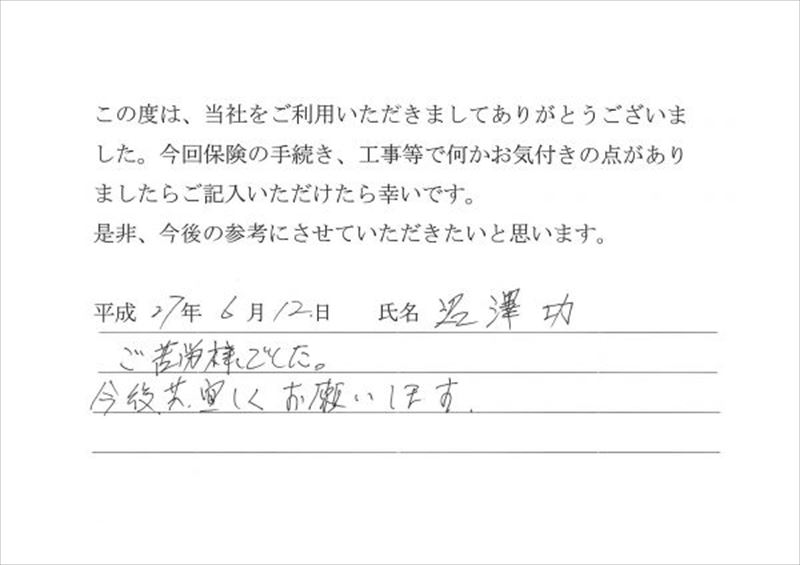 この度は、当社をご利用いただきましてありがとうございま
した。今回保険の手続き、工事等で何かお気付きの点があり
ましたらご記入いただけたら幸いです。
是非、今後の参考にさせていただきたいと思います。
平成 27年 6月 12日 氏名 沼澤 功
ご苦労様でした。
今後共宜しくお願いします.